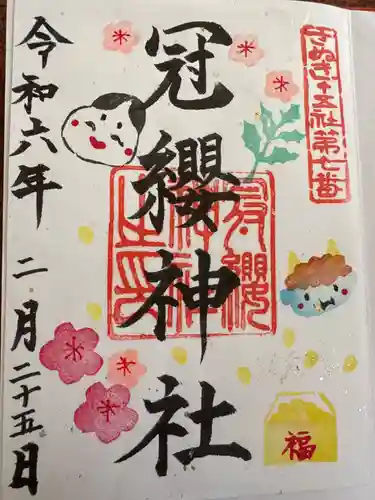 さぬき十五社第七番
冠纓神社
冠纓神社之印
福
令和六年二月二十五日